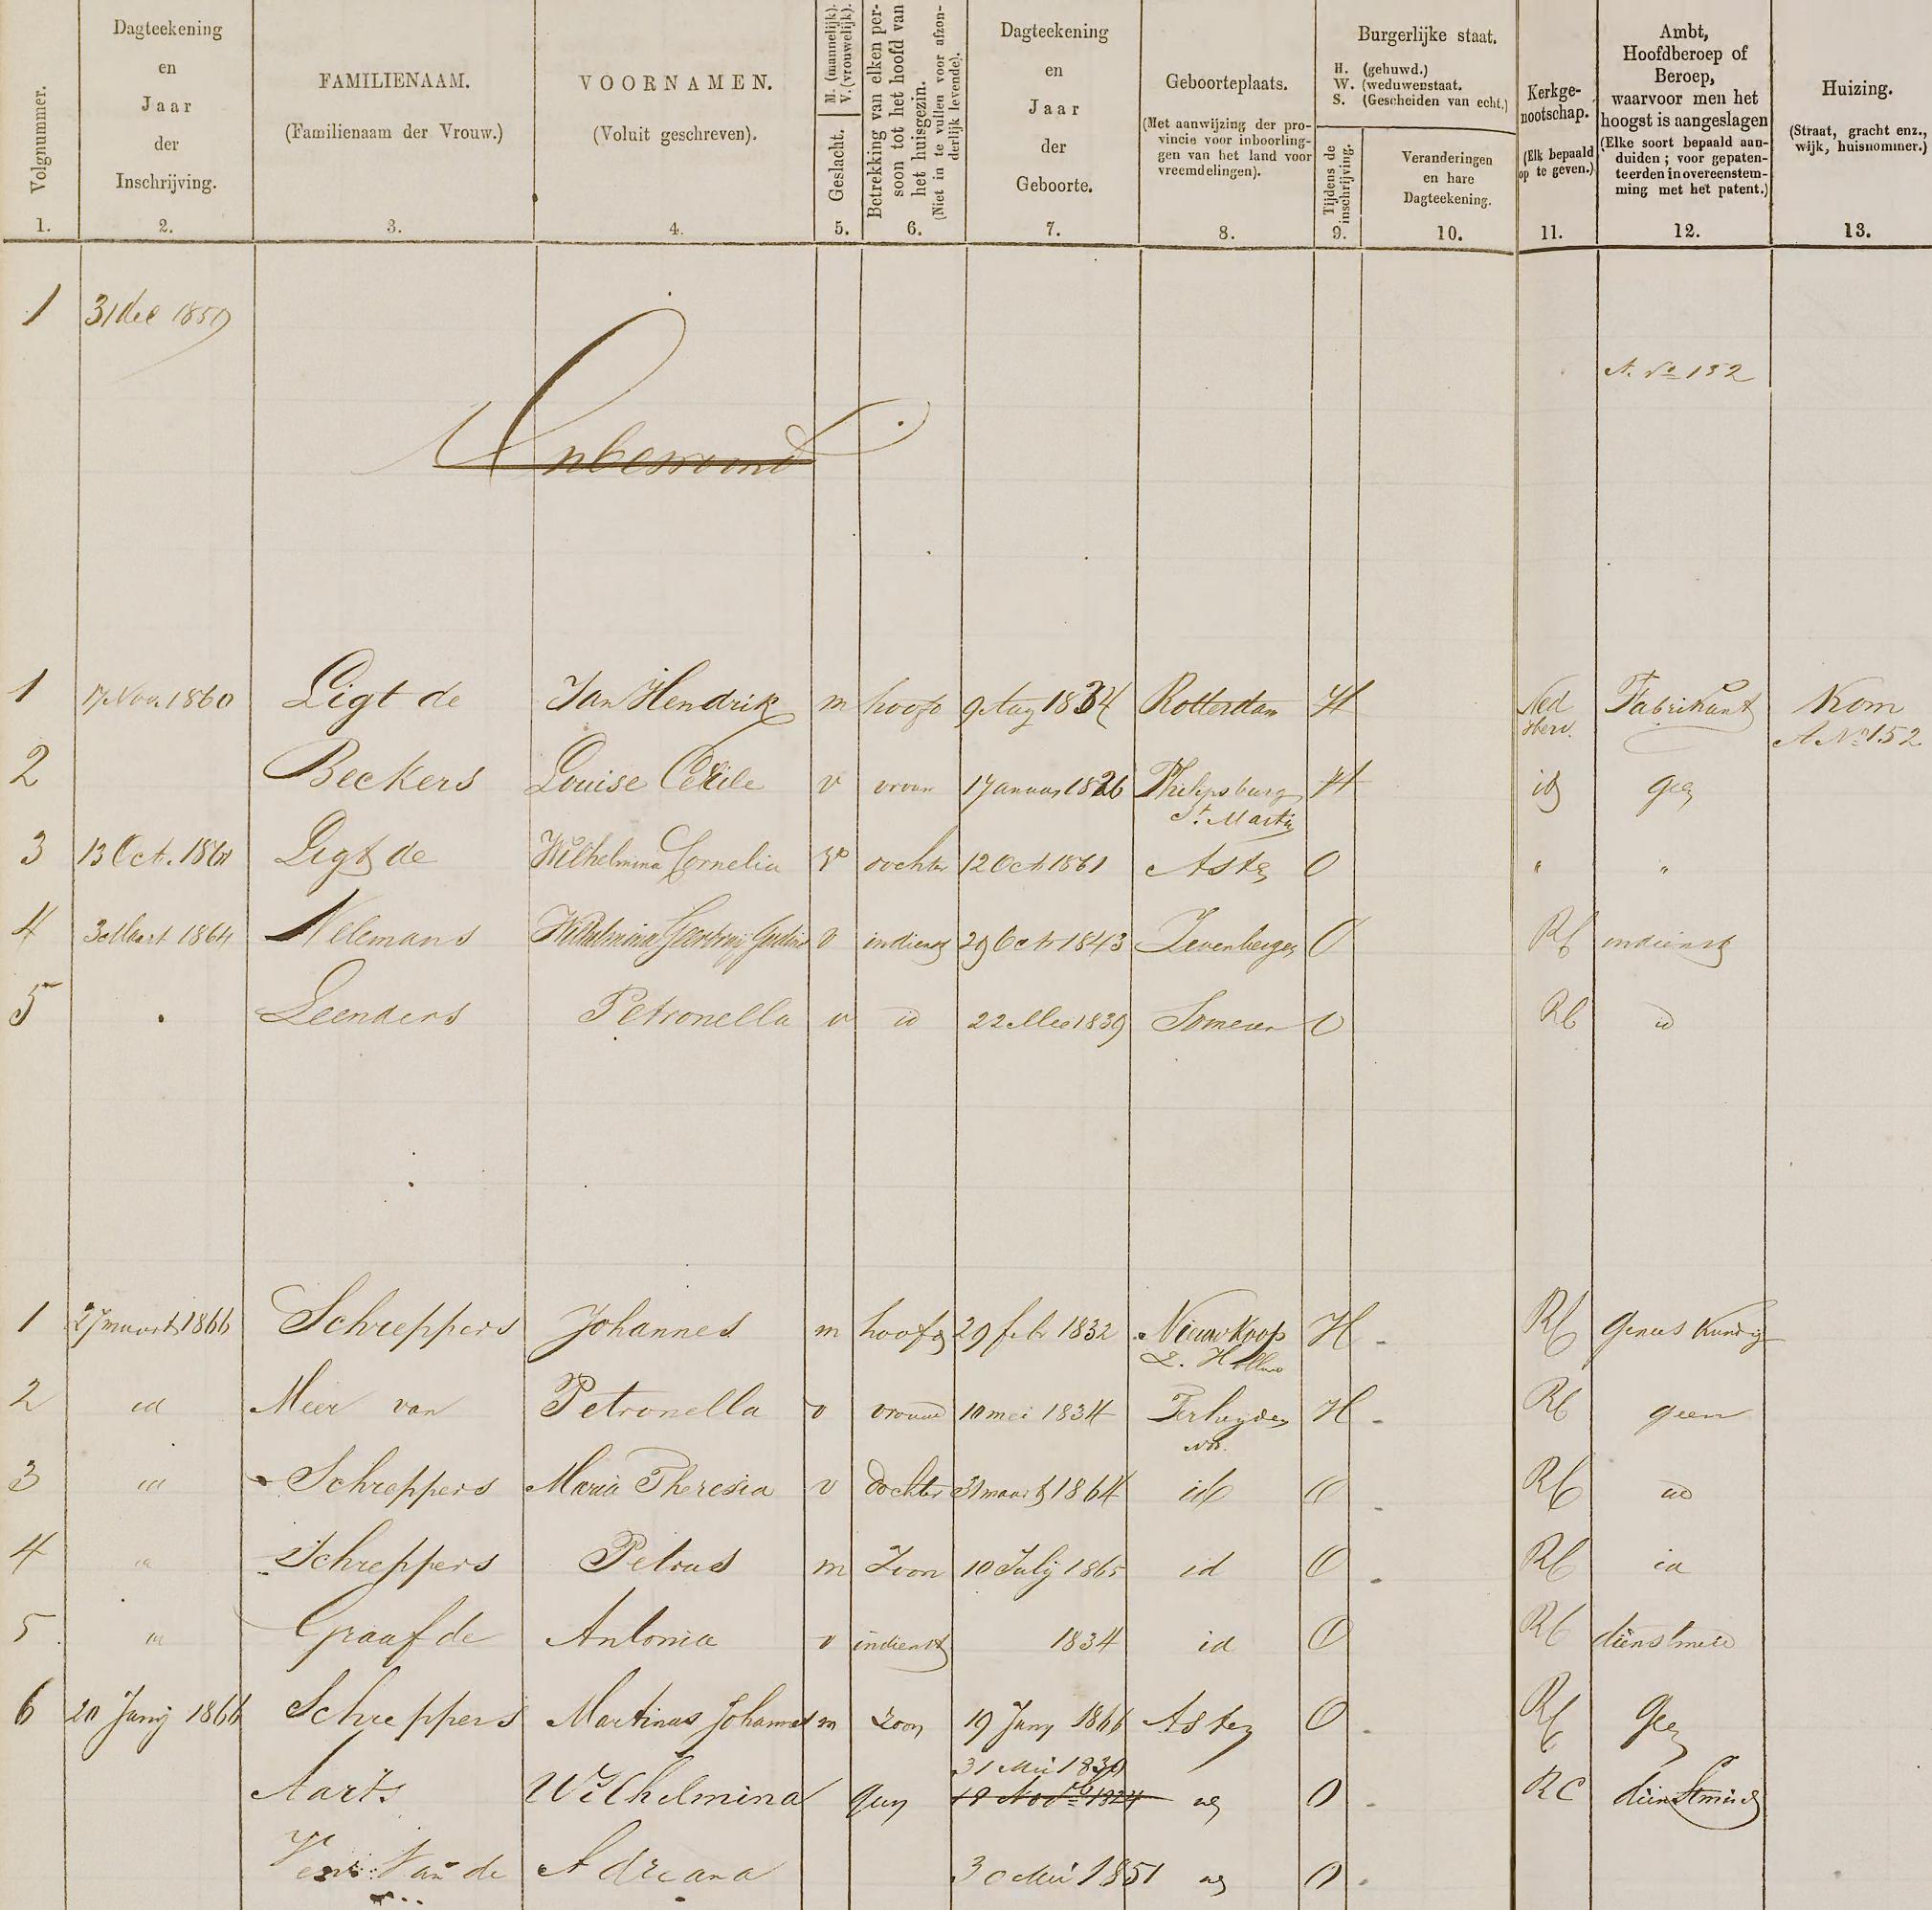 Volgnummer.
1.
Dagteekening
en
Jaar
der
Inschrijving.
2.
FAMILIENAAM.
(Familienaam der Vrouw.)
3.
VOORNAMEN.
(Voluit geschreven).
4.
M. (mannelijk).
V. (vrouwelijk).
Geslacht.
5.
Betrekking van elken per-
soon tot het hoofd van
het huisgezin.
(Niet in te vullen voor afzon-
derlijk levende).
6.
Dagteekening
en
Jaar
der
Geboorte.
7.
Geboorteplaats.
(Met aanwijzing der pro-
vincie voor inboorling-
gen van het land voor
vreemdelingen).
8.
Burgerlijke staat.
H. (gehuwd.)
W. (weduwenstaat.
S. (Gescheiden van echt.)
Tijdens de
inschrijving.
9.
Veranderingen
en hare
Dagteekening.
10.
Kerkge-
nootschap.
(Elk bepaald
op te geven.)
11.
Ambt,
Hoofdberoep of
Beroep,
waarvoor men het
hoogst is aangeslagen
(Elke soort bepaald aan-
duiden; voor gepaten-
teerden in overeenstem-
ming met het patent.)
12.
Huizing.
(Straat, gracht enz.,
wijk, huisnommer.)
13.
1 31 dec 1859
A. No 152
Onbewoond
1 17 Nov. 1860 Ligt de Jan Hendrik m hoofd 9 Aug 1834 Rotterdam H Ned Fabrikant Kom
Herv. A No 152
2 Beckers Louise Cecile v vrouw 1 Januar 1826 Philipsburg H id geen
St. Martin
3 13 Oct. 1861 Ligt de Wilhelmina Cornelia v dochter 12 Oct 1861 Asten O " "
4 30 Maart 1864 Nelemans Wilhelmina v indienst 29 Oct 1843 Zevenbergen O RC indienst
5 Leenders Petronella v id 22 Mei 1839 Someren O RC id
1 27 maart 1866 Schreppers Johannes m hoofd 29 febr 1832 Nieuwkoop H RC geneeskundig
Z. Holland
2 id Meer van Petronella v vrouw 10 mei 1834 Terheyden H RC geen
NB.
3 id Schreppers Maria Theresia v dochter 31 maart 1864 id O RC id
4 id Schreppers Petrus m Zoon 10 Julij 1865 id O RC id
5 id Graaf de Antonia v indienst 1834 id O RC dienstmeid
6 20 Junij 1866 Schreppers Martinus Johannes m zoon 19 Juny 1866 Asten O RC geen
31 Mei 1830
Aarts Wilhelmina geen 18 Novb 1824 id O RC dienstmeid
Van de Adreana 30 Mei 1851 id O